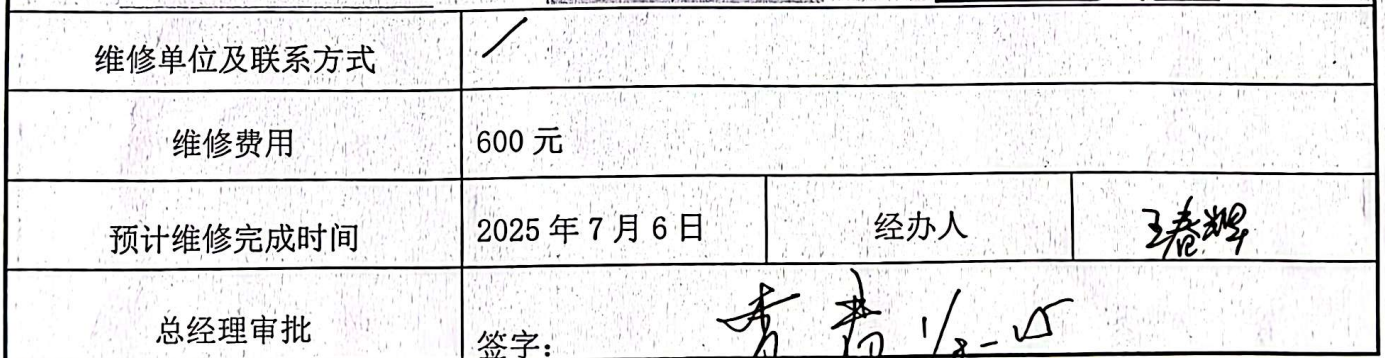 维修单位及联系方式 /
维修费用 600 元
预计维修完成时间 2025 年 7 月 6 日 经办人 王春辉
总经理审批 签字：